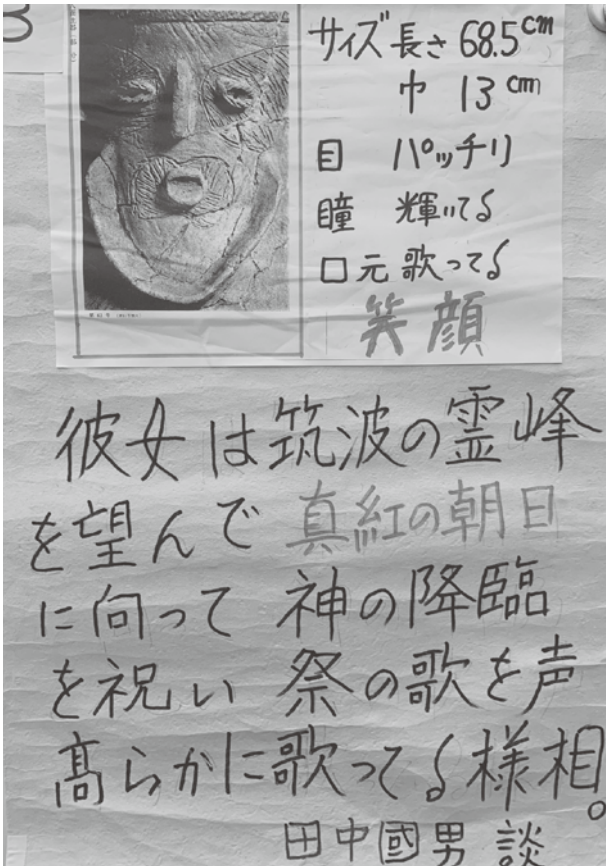 サイズ 長さ 68.5cm
巾 13cm
目 パッチリ
瞳 輝いてる
口元 歌ってる
笑顔
彼女は筑波の霊峰
を望んで 真紅の朝日
に向って 神の降臨
を祝い 祭の歌を声
髙らかに歌ってる様相。
田中國男 談